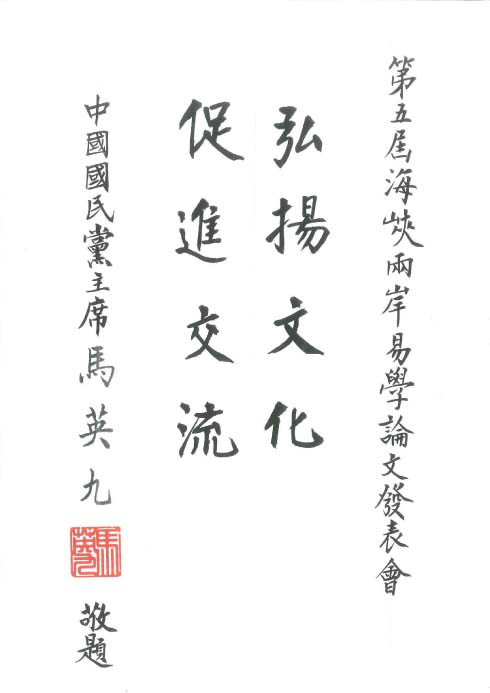 第五屆海峽兩岸易學論文發表會
弘揚文化
促進交流
中國國民黨主席馬英九
馬英九
敬題